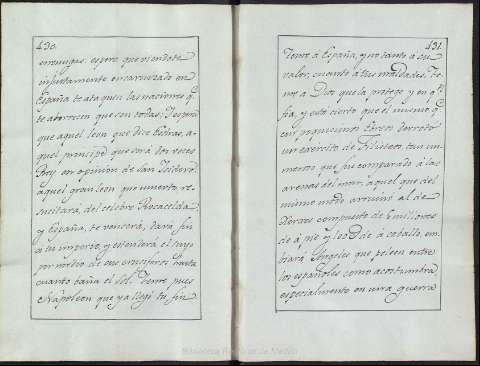 430.
enemigas: espero que viendote
injustamente encarnizado en
España te ataquen las naciones q.e
te aborrecen que son todas; y espero
que aquel leon que dice Esdras, a-
quel principe que será dos veces
Rey en opinion de San Isidoro,
aquel gran leon que muerto re-
sucitará, del celebre Rocacelda,
y España, te vencerá, dará fin
á tu imperio, y estenderá el suyo
por medio de sus cruciferos hasta
cuanto baña el Sol. Teme pues
Napoleon que ya llegó tu fin
431.
Teme á España, y no tanto á su
valor, cuanto á tus maldades. Te-
me á Dios que la protege y en q.n
fia; y está cierto que el mismo q.e
con poquisimos Ebreos derrotó
un exército de Filisteos, tan nu-
meroso que fue comparado á las
arenas del mar; aquel que del
mismo modo arruinó al de
Xerxes compuesto de millones
de á pie y de á caballo, em-
biará Angeles que peleen entre
los españoles como acostumbra,
especialmente en una guerra
Biblioteca Nacional de México